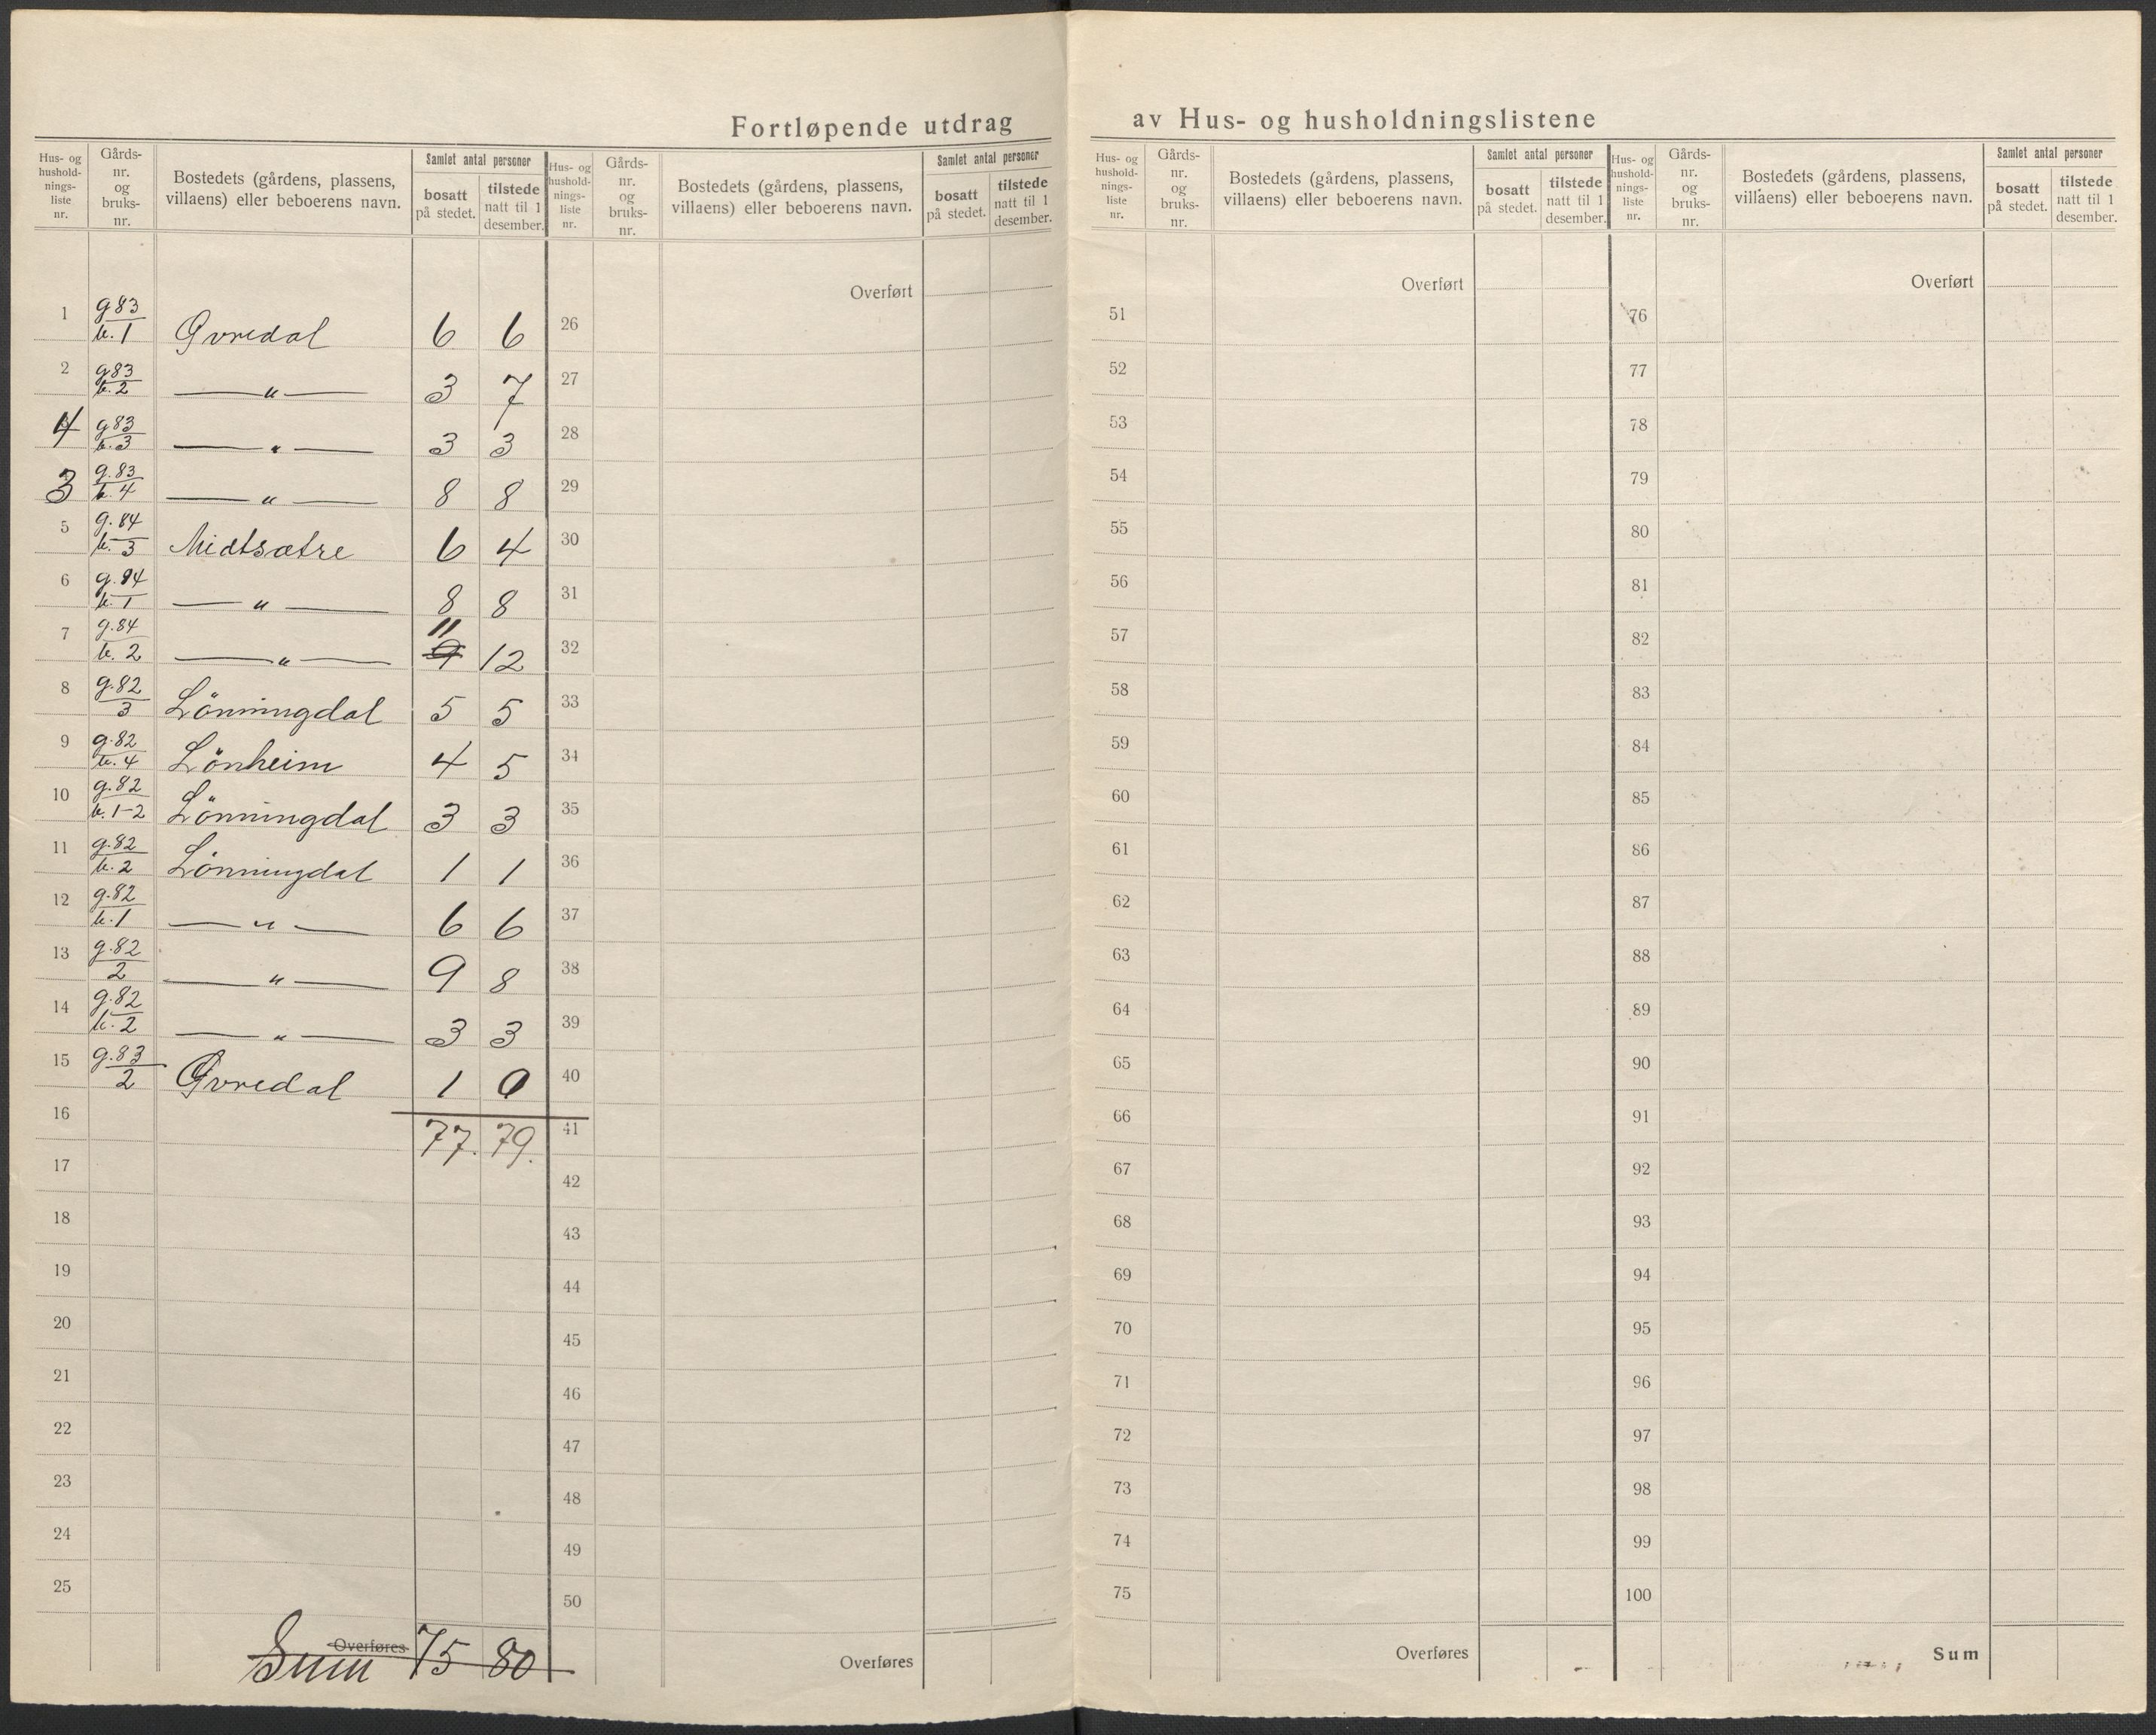 Fortløpende utdrag av Hus- og husholdningslistene
Hus- og husholdnings- liste nr. | Gårds- nr. og bruks- nr. | Bostedets (gårdens, plassens, villaens) eller beboerens navn. | Samlet antal personer | bosatt på stedet. | tilstede natt til 1 desember.
1 g 83 b. 1 Øvredal 6 6
2 g 83 b. 2 — " — 3 7
4 g 83 b. 3 — " — 3 3
3 g. 83 b. 4 — " — 8 8
5 g. 84 b. 3 Midtsætre 6 4
6 g. 84 b. 1 — " — 8 8
7 g. 84 b. 2 — " — 9 11 12
8 g. 82 3 Lönningdal 5 5
9 g. 82 b. 4 Lönheim 4 5
10 g. 82 b. 1-2 Lönningdal 3 3
11 g. 82 b. 2 Lönningdal 1 1
12 g. 82 b. 1 — " — 6 6
13 g. 82 2 — " — 9 8
14 g. 82 b. 2 — " — 3 3
15 g. 83 2 Øvredal 1 0
16 77. 79.
17
18
19
20
21
22
23
24
25
Overføres Sum 75 80
Hus- og husholdnings- liste nr. | Gårds- nr. og bruks- nr. | Bostedets (gårdens, plassens, villaens) eller beboerens navn. | Samlet antal personer | bosatt på stedet. | tilstede natt til 1 desember.
Overført
26
27
28
29
30
31
32
33
34
35
36
37
38
39
40
41
42
43
44
45
46
47
48
49
50
Overføres
Hus- og husholdnings- liste nr. | Gårds- nr. og bruks- nr. | Bostedets (gårdens, plassens, villaens) eller beboerens navn. | Samlet antal personer | bosatt på stedet. | tilstede natt til 1 desember.
Overført
51
52
53
54
55
56
57
58
59
60
61
62
63
64
65
66
67
68
69
70
71
72
73
74
75
Overføres
Hus- og husholdnings- liste nr. | Gårds- nr. og bruks- nr. | Bostedets (gårdens, plassens, villaens) eller beboerens navn. | Samlet antal personer | bosatt på stedet. | tilstede natt til 1 desember.
Overført
76
77
78
79
80
81
82
83
84
85
86
87
88
89
90
91
92
93
94
95
96
97
98
99
100
Sum